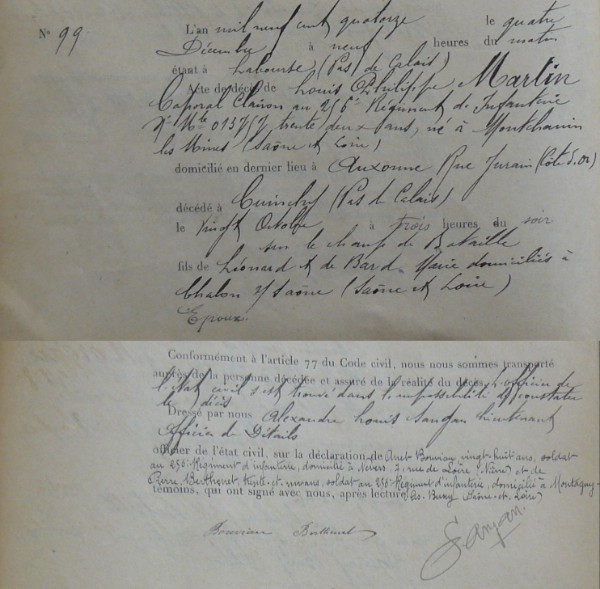 N° 99
L'an mil neuf cent quatorze le quatre
Décembre à neuf heures du matin
étant à Labourse (Pas de Calais)
Acte de décès de Louis Philippe Martin
Caporal Clairon au 256e Régiment d'Infanterie
N° Mle 01375, trente deux ans, né à Montchanin
les Mines (Saône et Loire)
domicilié en dernier lieu à Auxonne Rue Jurain (Côte d'Or)
décédé à Cuinchy (Pas de Calais)
le vingt Octobre à trois heures du soir
sur le champ de Bataille
fils de Léonard et de Bard Marie domiciliés à
Chalon s/Saône (Saône et Loire)
Epoux.
Conformément à l'article 77 du Code civil, nous nous sommes transporté
auprès de la personne décédée et assuré de la réalité du décès. L'officier de
l'état civil s'est trouvé dans l'impossibilité de constater
le décès
Dressé par nous Alexandre Louis lieutenant
Officier de Détails
officier de l'état civil, sur la déclaration de Bouviau, vingt huit ans, soldat
au 256e Régiment d'infanterie, domicilié à Nevers, 7, rue de Loire (Nièvre) et de
Pierre Berthenet, trente et un ans, soldat au 256e Régiment d'infanterie, domicilié à Montagny-
témoins, qui ont signé avec nous, après lecture. les Buxy (Saône-et-Loire)
Berthenet